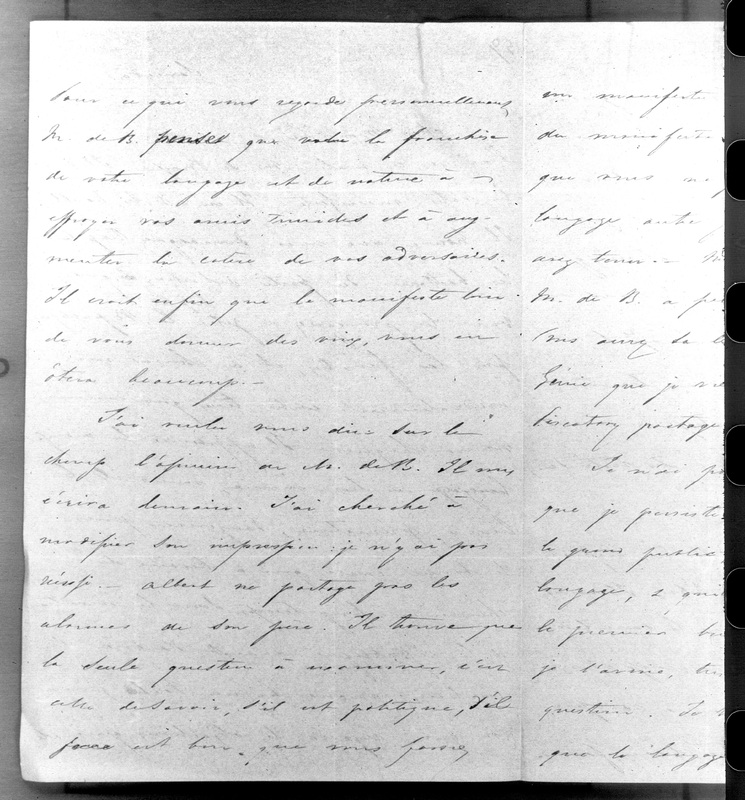 Pour ce qui vous regarde personnellement,
M. de B. pense que la franchise
de votre langage est de nature à
effrayer vos amis timides et à aug-
menter la colère de vos adversaires.
Il croit enfin que le manifeste loin
de vous donner des voix, vous en
ôtera beaucoup. —
J'ai voulu vous dire sur le
champ l'opinion de M. de B. Il vous
écrira demain. J'ai cherché à
modifier son impression : je n'y ai pas
réussi. — Albert ne partage pas les
alarmes de son père. Il trouve que
la seule question à examiner, c'est
celle de savoir, s'il est politique, s'il
est bon, que vous
un manifeste
du manifeste
que vous
langage
avez tenu. —
M. de B. a
sa
Génie que je
Piscatory partage
Je n'ai
que je persiste
le grand public
langage,
le premier
je l'avoue,
question. Je
que le langage